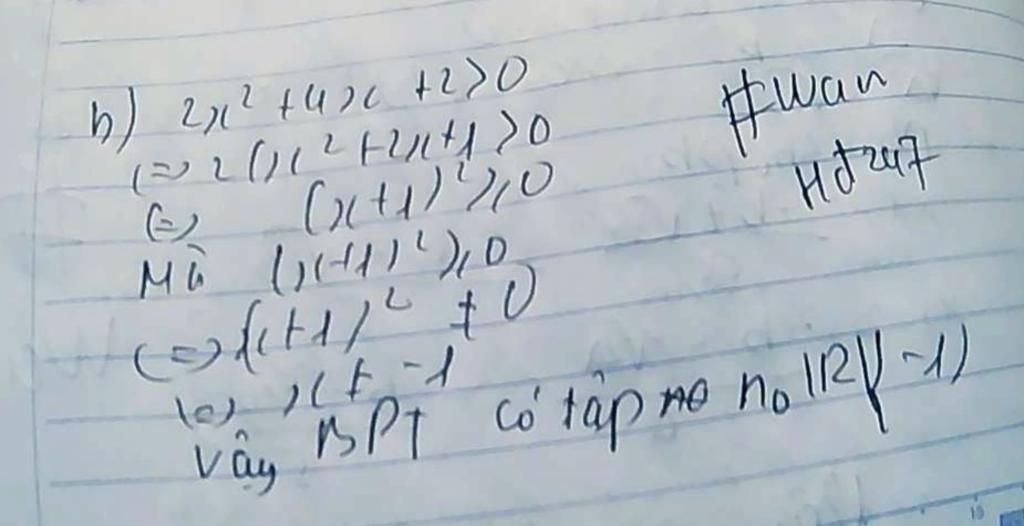 b) 2x² + 4x + 2 > 0
(=) 2(x² + 2x + 1 > 0
(=) (x+1)² ≥ 0
Mà (x+1)² ≥ 0
(=) (x+1)² ≠ 0
(=) x ≠ -1
Vậy BPT có tập no IR\{-1)
#wan
Hđ247